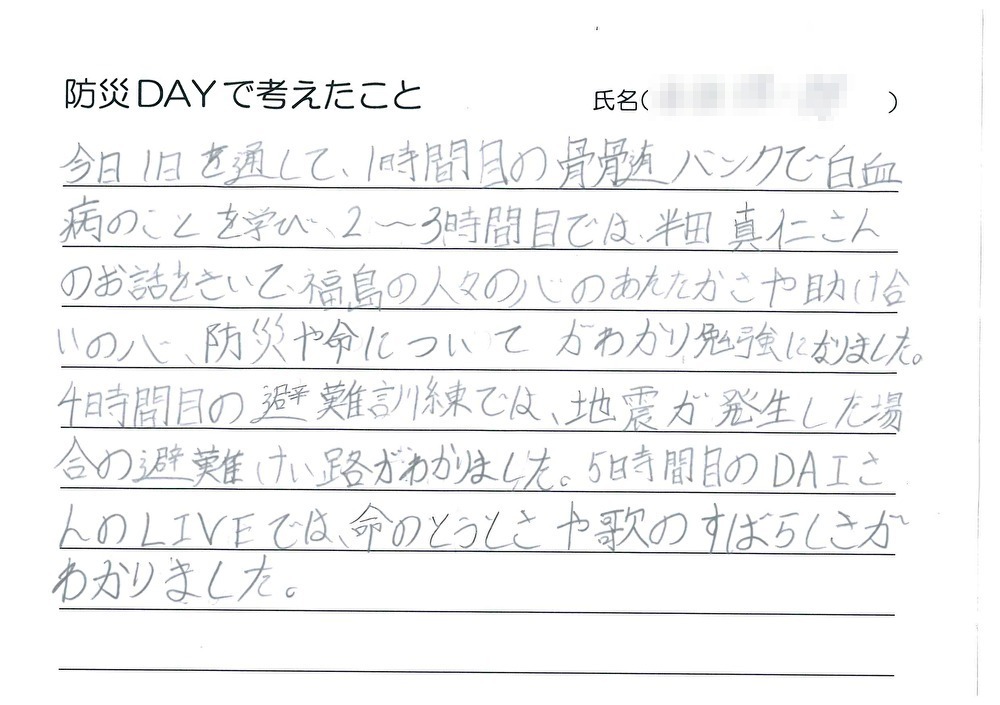 防災DAYで考えたこと
氏名( )
今日1日を通して、1時間目の骨骨髄バンクで白血
病のことを学び、2〜3時間目では、半田真仁さん
のお話をきいて、福島の人々の心のあたたかさや助け合
いの心、防災や命についてがわかり勉強になりました。
4時間目の避難訓練では、地震が発生した場
合の避難けい路がわかりました。5時間目のDAIさ
んのLIVEでは、命のとうとさや歌のすばらしさが
わかりました。